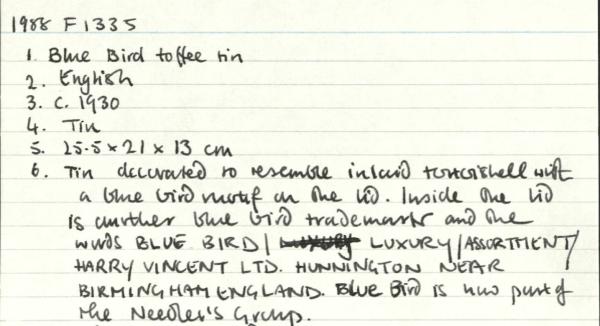 1988 F1335
1. Blue Bird toffee tin
2. English
3. C. 1930
4. Tin
5. 25.5 x 21 x 13 cm
6. Tin decorated to resemble inlaid tortoishell with
a blue bird motif on the lid. Inside the lid
is another blue bird trademark and the
words BLUE BIRD / LUXURY / ASSORTMENT /
HARRY VINCENT LTD. HUNNINGTON NEAR
BIRMINGHAM ENGLAND. Blue Bird is now part of
the Needler's Group.